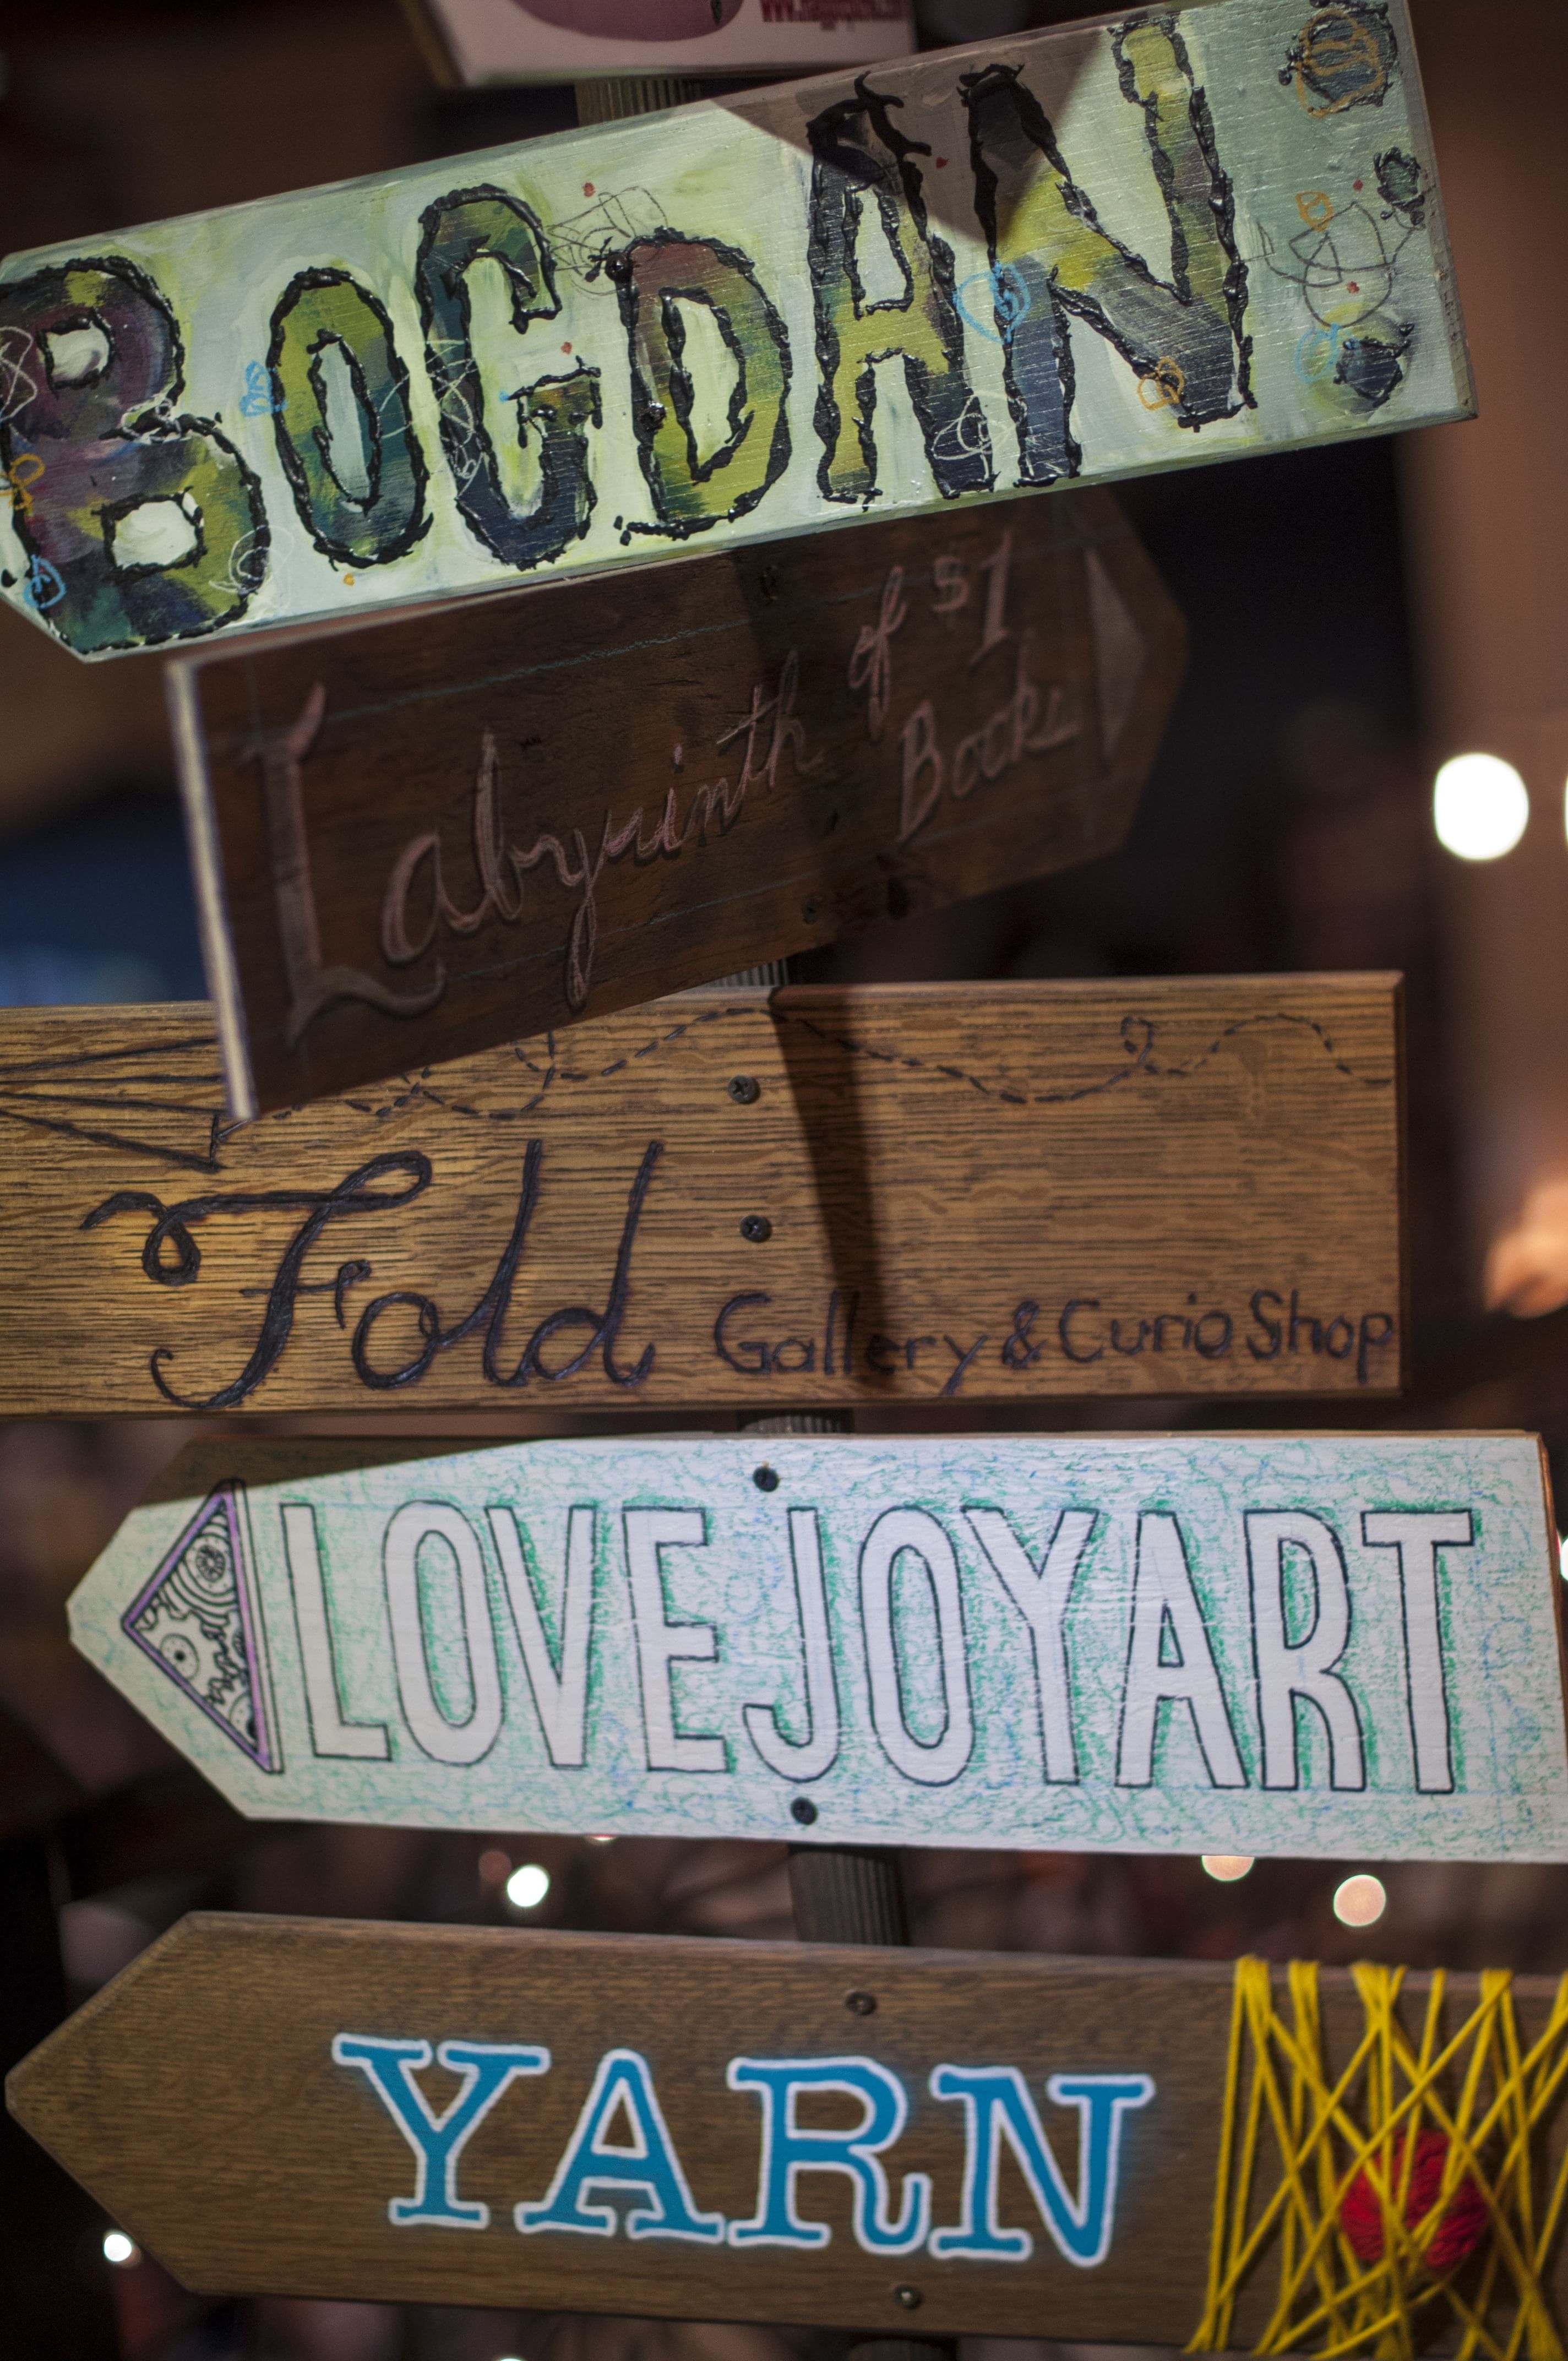 BOGDAN
Labyrinth of $1
Books
Fold Gallery & Curio Shop
LOVEJOYART
YARN